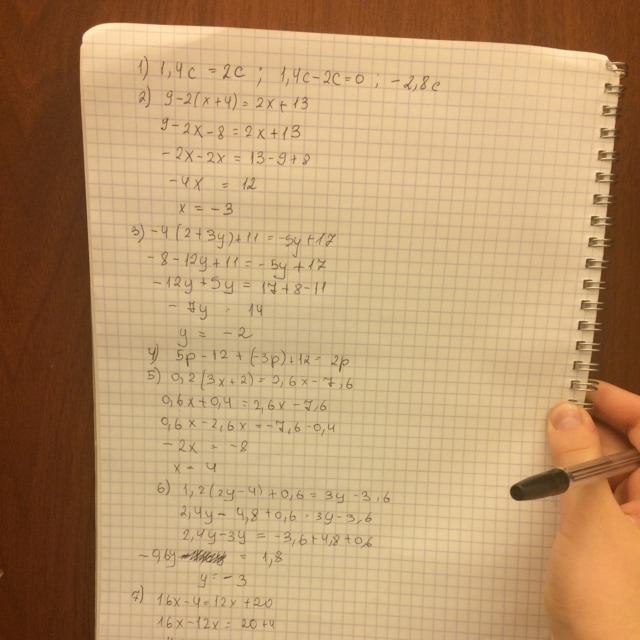 1) 1,4c = 2c ; 1,4c-2c=0 ; -2,8c
2) 9-2(x+4)=2x+13
9-2x-8=2x+13
-2x-2x=13-9+8
-4x = 12
x=-3
3) -4(2+3y)+11=-5y+17
-8-12y+11=-5y+17
-12y+5y=17+8-11
-7y = 14
y = -2
4) 5p-12+(-3p)+12=2p
5) 0,2(3x+2)=2,6x-7,6
0,6x+0,4=2,6x-7,6
0,6x-2,6x=-7,6-0,4
-2x = -8
x=4
6) 1,2(2y-4)+0,6=3y-3,6
2,4y-4,8+0,6=3y-3,6
2,4y-3y = -3,6+4,8+0,6
-0,6y = 1,8
y=-3
7) 16x-4=12x+20
16x-12x=20+4